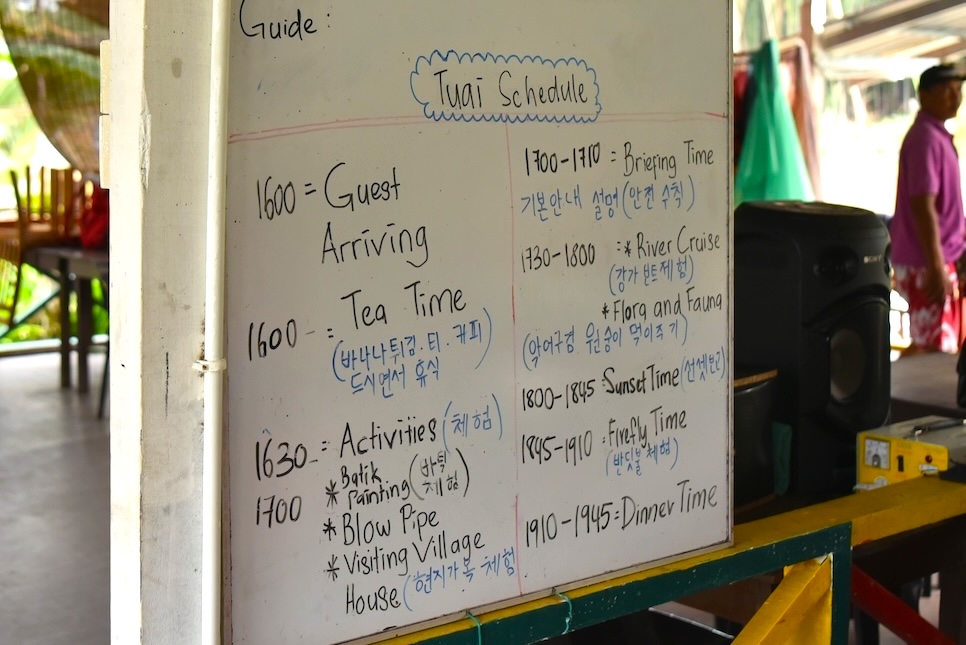 Guide:
Tuai Schedule
1600 = Guest
Arriving
1600 = Tea Time
(바나나튀김. 티. 커피)
드시면서 휴식
1630 = Activities (체험)
1700
* Batik Painting (바틱 체험)
* Blow Pipe
* Visiting Village
House (현지가옥 체험
1700-1710 = Briefing Time
기본안내 설명 (안전 수칙)
1730-1800 = * River Cruise
(강가 보트체험)
* Flora and Fauna
(악어구경. 원숭이 먹이주기)
1800-1845 = Sunset Time (선셋보기)
1845-1910 = Firefly Time
(반딧불 체험)
1910-1945 = Dinner Time
SONY